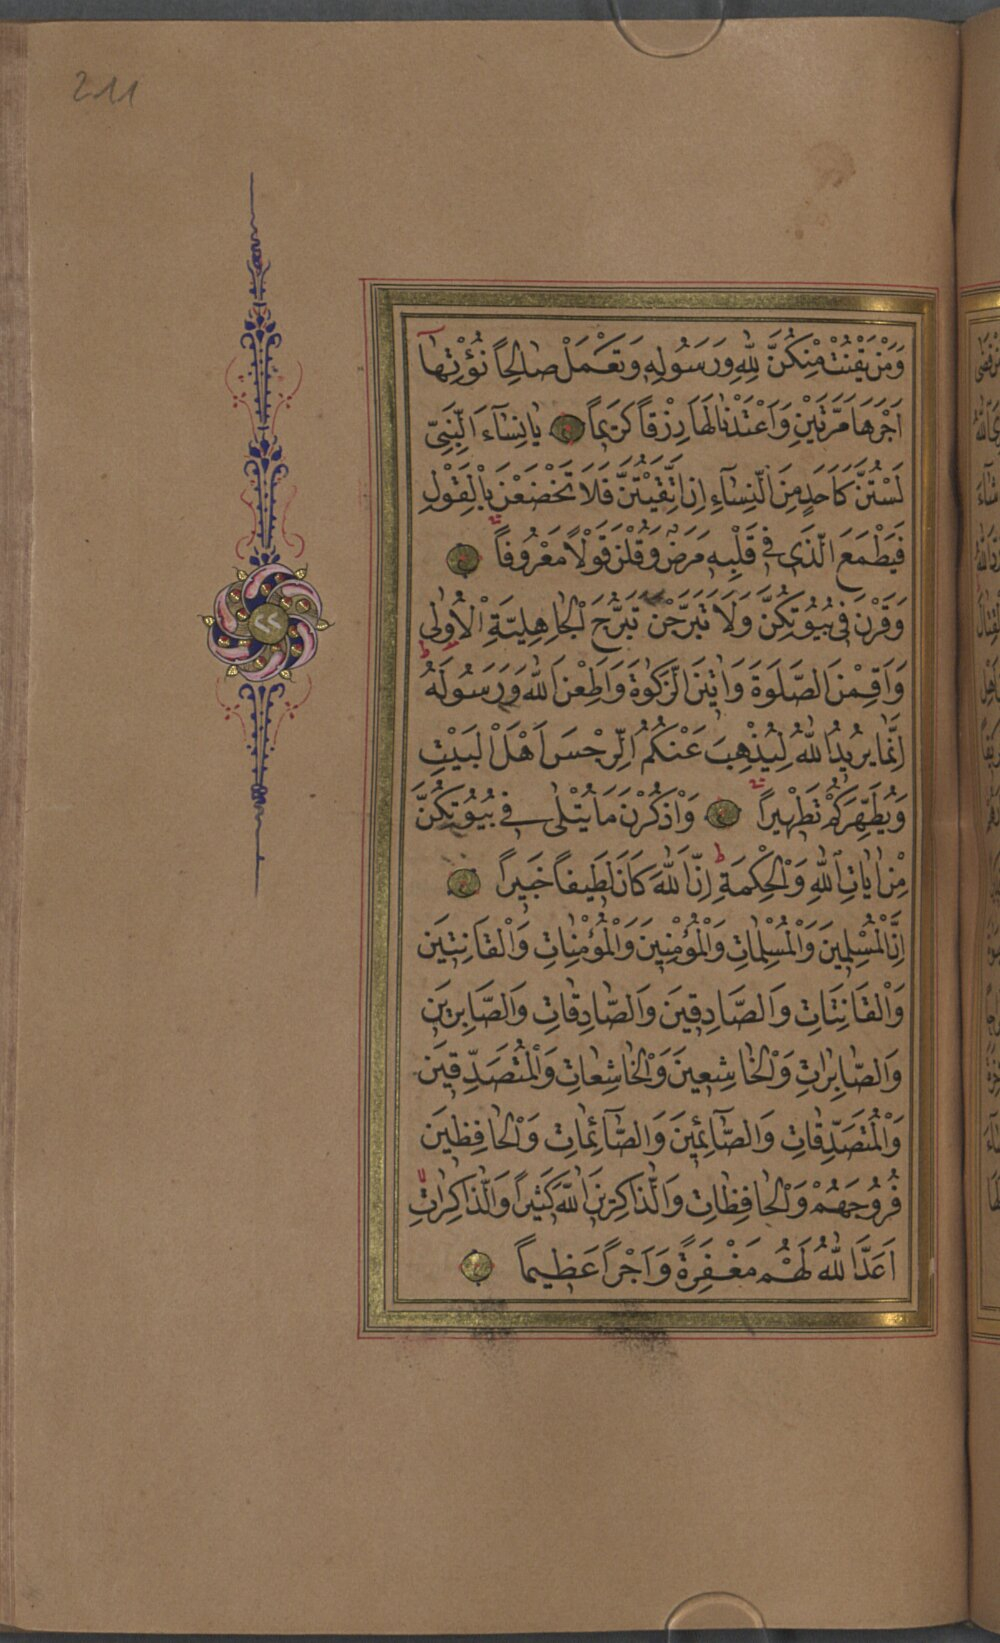 211
وَمَنْ يَقْنُتْ مِنْكُنَّ لِلّٰهِ وَرَسُولِهٖ وَتَعْمَلْ صَالِحًا نُؤْتِهَٓا
اَجْرَهَا مَرَّتَيْنِ وَاَعْتَدْنَا لَهَا رِزْقًا كَرِيمًا يَا نِسَٓاءَ النَّبِيِّ
لَسْتُنَّ كَاَحَدٍ مِنَ النِّسَٓاءِ اِنِ اتَّقَيْتُنَّ فَلَا تَخْضَعْنَ بِالْقَوْلِ
فَيَطْمَعَ الَّذِي فِي قَلْبِهٖ مَرَضٌ وَقُلْنَ قَوْلًا مَعْرُوفًا
وَقَرْنَ فِي بُيُوتِكُنَّ وَلَا تَبَرَّجْنَ تَبَرُّجَ الْجَاهِلِيَّةِ الْاُولٰى
وَاَقِمْنَ الصَّلٰوةَ وَاٰتِينَ الزَّكٰوةَ وَاَطِعْنَ اللّٰهَ وَرَسُولَهُ
اِنَّمَا يُرِيدُ اللّٰهُ لِيُذْهِبَ عَنْكُمُ الرِّجْسَ اَهْلَ الْبَيْتِ
وَيُطَهِّرَكُمْ تَطْهِيرًا وَاذْكُرْنَ مَا يُتْلٰى فِي بُيُوتِكُنَّ
مِنْ اٰيَاتِ اللّٰهِ وَالْحِكْمَةِ اِنَّ اللّٰهَ كَانَ لَطِيفًا خَبِيرًا
اِنَّ الْمُسْلِمِينَ وَالْمُسْلِمَاتِ وَالْمُؤْمِنِينَ وَالْمُؤْمِنَاتِ وَالْقَانِتِينَ
وَالْقَانِتَاتِ وَالصَّادِقِينَ وَالصَّادِقَاتِ وَالصَّابِرِينَ
وَالصَّابِرَاتِ وَالْخَاشِعِينَ وَالْخَاشِعَاتِ وَالْمُتَصَدِّقِينَ
وَالْمُتَصَدِّقَاتِ وَالصَّٓائِمِينَ وَالصَّٓائِمَاتِ وَالْحَافِظِينَ
فُرُوجَهُمْ وَالْحَافِظَاتِ وَالذَّاكِرِينَ اللّٰهَ كَثِيرًا وَالذَّاكِرَاتِ
اَعَدَّ اللّٰهُ لَهُمْ مَغْفِرَةً وَاَجْرًا عَظِيمًا